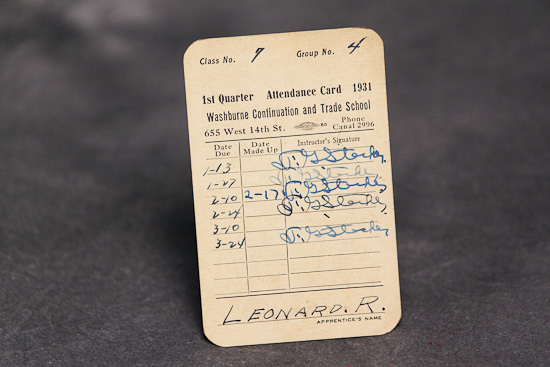 Class No. 7 Group No. 4
1st Quarter Attendance Card 1931
Washburne Continuation and Trade School
655 West 14th St. Phone Canal 2996
Date Due Date Made Up Instructor's Signature
1-13
1-27
2-10 2-17
2-24
3-10
3-24
LEONARD. R.
APPRENTICE'S NAME